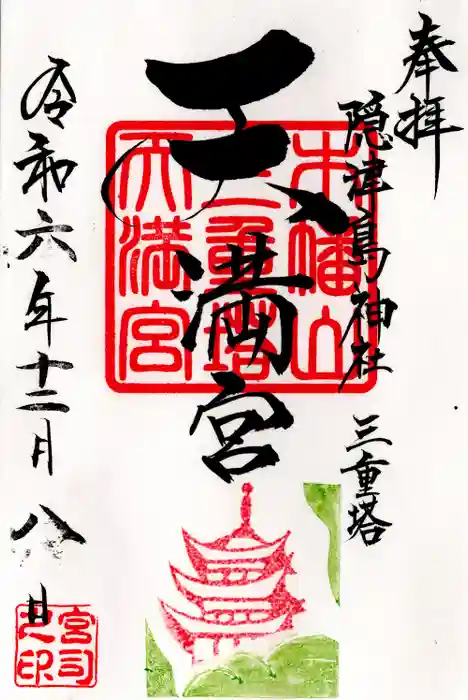 奉拝
隠津島神社 三重塔
天満宮
令和六年十二月八日
木幡山
三重塔
天満宮
宮司
之印